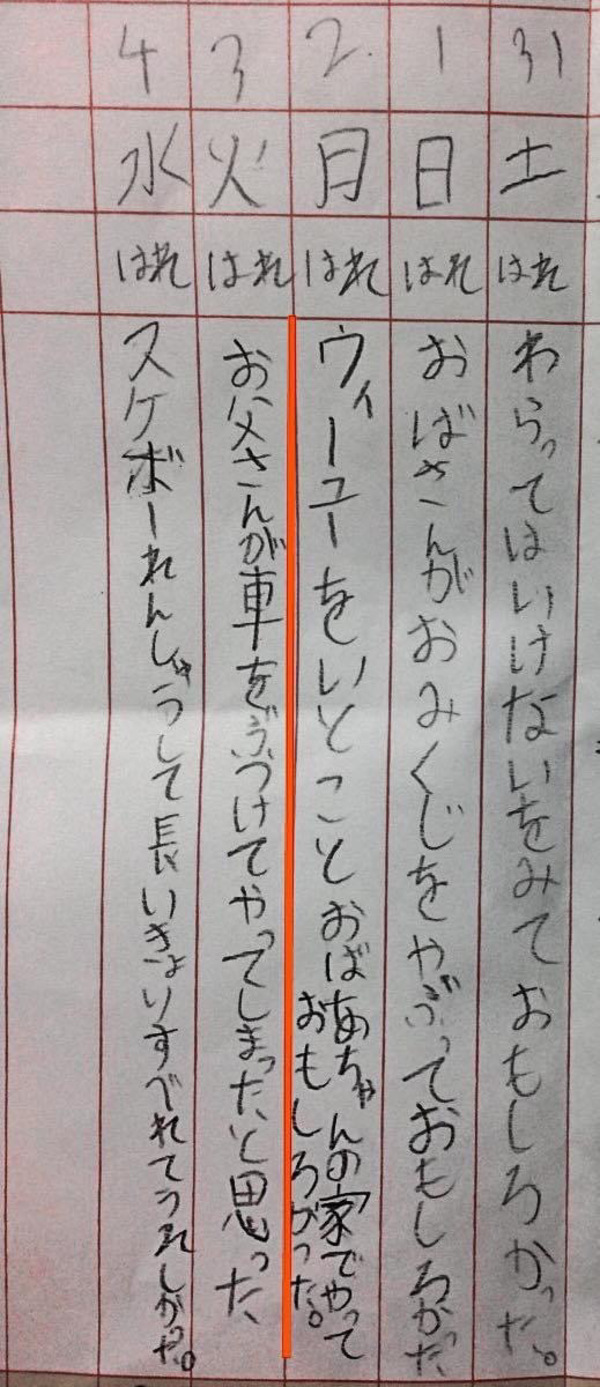 31
土
はれ
わらってはいけないをみておもしろかった。
1
日
はれ
おばさんがおみくじをやぶっておもしろかった
2.
月
はれ
ウィーユーをいとことおばあちゃんの家でやって
おもしろかった。
3
火
はれ
お父さんが車をぶつけてやってしまったいと思った、
4
水
はれ
スケボーれんしゅうして長いきょりすべれてうれしかった。